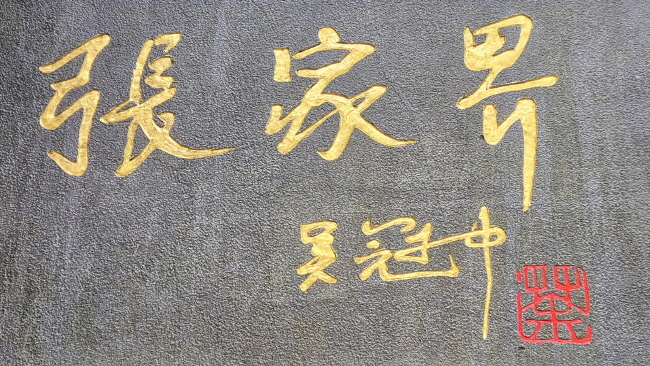 張家界
吴冠中
荼